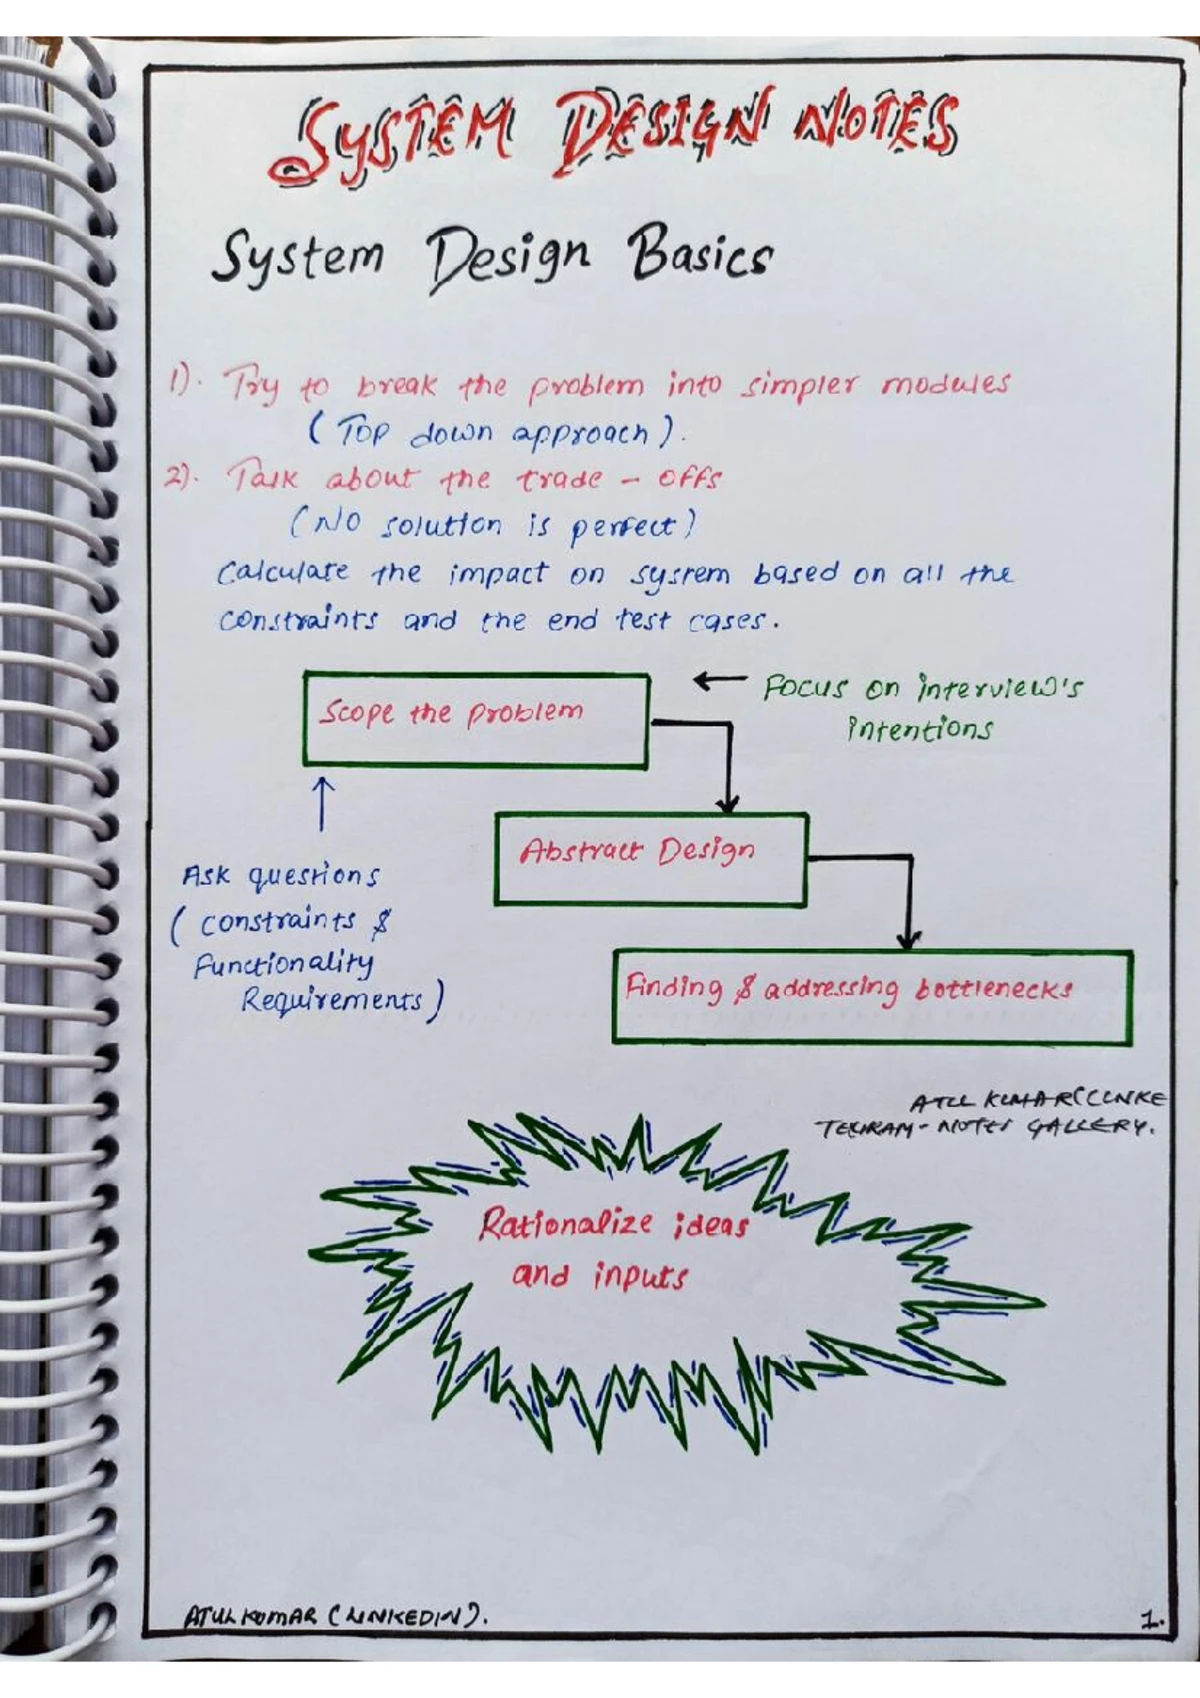 SYSTEM DESIGN NOTES
System Design Basics
1). Try to break the problem into simpler modules
(Top down approach).
2). Talk about the trade - offs
(No solution is perfect)
Calculate the impact on sysrem based on all the
constraints and the end test cases.
Scope the problem
← Focus on interview's
intentions
Abstract Design
Ask questions
( constraints &
Functionality
Requirements )
Finding & addressing bottlenecks
ATUL KUMAR (LINKE
- NOTES GALLERY.
Rationalize ideas
and inputs
ATUL KUMAR (LINKEDIN).
1.